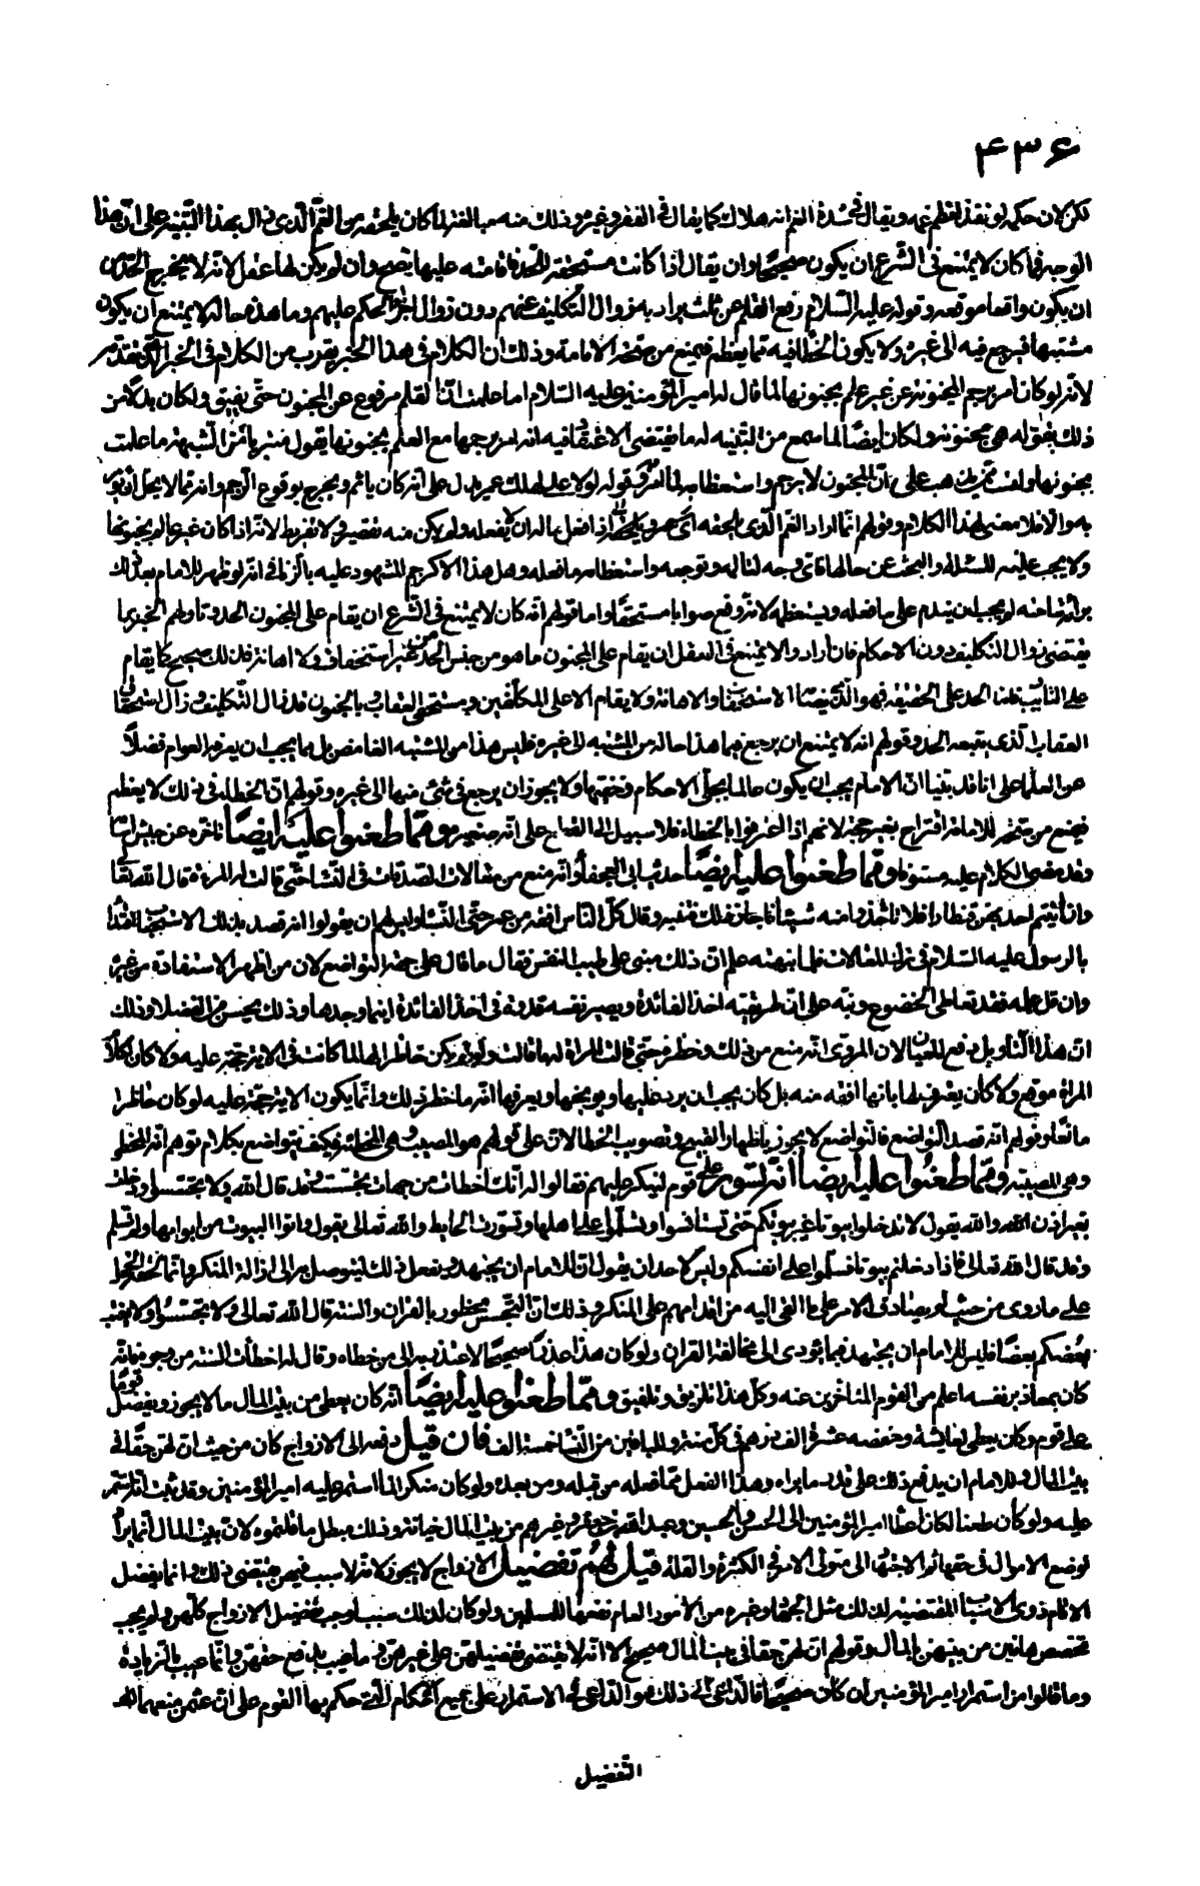 ۴۳۶
لكن لان حكمه لو نفذ لعظم غمه ويقال فى شدة الغم انه هلاك كما يقال فى الفقر وغيره وذلك منه مبالغة لما كان يلحقه من الغم الذى زال بهذا التنبيه على ان هذا
الوجه مما كان لا يمتنع فى الشرع ان يكون صحيحا وان يقال اذا كانت مستحقة للحد فاقامته عليها يصح وان لم يكن لها عقل لانه لا يخرج الحد من
ان يكون واقعا موقعه وقوله عليه السلام رفع القلم عن ثلث يراد به زوال التكليف عنهم دون زوال اجراء الحكم عليهم وما هذه حاله لا يمتنع ان يكون
مشتبها فيرجع فيه الى غيره ولا يكون الخطا فيه مما يعظم فيمنع من صحة الامامة وذلك ان الكلام فى هذا الخبر يقرب من الكلام فى الخبر الذى تقدمه
لانه لو كان امر برجم المجنونة عن غير علم بجنونها لما قال له امير المؤمنين عليه السلام اما علمت ان القلم مرفوع عن المجنون حتى يفيق ولكان بدلا من
ذلك يقول له هى مجنونة ولكان ايضا لما سمع من التنبيه له ما يقتضى الاعتقاد فيه انه امر برجمها مع العلم بجنونها يقول متبريا من الشبهة ما علمت
بجنونها ولست ممن يذهب عليه ان المجنون لا يرجم واستعظامه لما امر وقوله لولا على لهلك عمر يدل على انه كان ياثم ويحرج بوقوع الرجم وانه مما لا يحل ان يؤمر
به والا فلا معنى لهذا الكلام وقولهم انما اراد الغم الذى يلحقه اى غم يلحقه اذا فعل ما له ان يفعله ولم يكن منه تقصير ولا تفريط لانه اذا كان غير عالم بجنونها
ولا يجب عليه المسئلة والبحث عن حالها فاى وجه لتالمه وتوجعه واستعظامه ما فعله وهل هذا الا كرجم المشهود عليه بالزنا فى انه لو ظهر للامام بعد ذلك
براءة ساحته لم يجب ان يندم على ما فعله ويستعظمه لانه وقع صوابا مستحقا واما قولهم انه كان لا يمتنع فى الشرع ان يقام على المجنون الحد وتاولهم الخبر بما
يقتضى زوال التكليف دون الاحكام فان ارادوا لا يمتنع فى العقل ان يقام على المجنون ما هو من جنس الحد من غير استخفاف ولا اهانة فذلك صحيح كما يقام
على التائب فاما الحد على الحقيقة فهو الذى يضامه الاستخفاف والاهانة ولا يقام الا على المكلفين ومستحقى العقاب بالجنون قد زال التكليف فزال استحقاق
العقاب الذى يتبعه الحد وقولهم انه لا يمتنع ان يرجع فيما هذا حاله من المشتبه الى غيره فليس هذا من المشتبه الغامض بل مما يجب ان يعرفه العوام فضلا
عن العلماء على انا قد بينا ان الامام يجب ان يكون عالما بجلى الاحكام وخفيها ولا يجوز ان يرجع فى شئ منها الى غيره وقولهم ان الخطاء فى ذلك لا يعظم
فيمنع من صحة الامامة اقتراح بغير حجة لانهم اذا اعترفوا بالخطاء فلا سبيل الى القطع على انه صغير ومما طعنوا عليه ايضا تاخره عن جيش اسامة
وقد مضى الكلام عليه مستوفا ومما طعنوا عليه ايضا حديث ابى العجفاء وانه منع من مغالات الصدقات فى النساء حتى قالت له المرءة قال الله تعالى
واذا اتيتم احديهن قنطارا فلا تاخذوا منه شيئا فاجاز ذلك فقير وقال كل الناس افقه من عمر حتى النساء وليس لهم ان يقولوا انه قصد بذلك الاستحباب اقتداء
بالرسول عليه السلام فى ترك المغالات فلما نبهته علم ان ذلك مبنى على طيب النفس فقال ما قال على جهة التواضع لان من اظهر الاستفادة من غيره
وان قل علمه فقد تعاطى الخضوع ونبه على ان طريقته اخذ الفائدة ويصير نفسه قدوة فى اخذ الفائدة اينما وجدها وذلك يحسن من الفضلاء وذلك
ان هذا التاويل دفع للعيان لان المروى انه منع من ذلك وحظره حتى قالت المراة له ما قالت ولو لم يكن حاظرا لها لما كانت فى الاية حجة عليه ولا كان لكلام
المراة موقع ولا كان يعترف لها بانها افقه منه بل كان يجب ان يرد عليها ويوبخها ويعرفها انه ما حظر ذلك وانما يكون الاية حجة عليه لو كان حاظرا
مانعا وقولهم انه قصد التواضع فالتواضع لا يجوز باظهار القبيح وتصويب الخطا لان على قولهم هو المصيب وهى المخطئة فكيف يتواضع بكلام توهم انه المخطى
وهى المصيبة ومما طعنوا عليه ايضا انه تسور على قوم لينكر عليهم فقالوا له انك اخطات من جهات تجسست وقد قال الله ولا تجسسوا ودخلت
بغير اذن الله والله يقول لا تدخلوا بيوتا غير بيوتكم حتى تستانسوا وتسلموا على اهلها وتسورت الحايط والله تعالى يقول واتوا البيوت من ابوابها ولم تسلم
وقد قال الله تعالى فاذا دخلتم بيوتا فسلموا على انفسكم وليس لاحد ان يقول ان للامام ان يجتهد ويفعل ذلك ليتوصل به الى ازالة المنكر وانما لحقه الخجل
على ما روى من حيث لم يصادف الامر على ما القى اليه من اقدامهم على المنكر وذلك ان التجسس محظور بالقران والسنة قال الله تعالى ولا تجسسوا ولا يغتب
بعضكم بعضا فليس للامام ان يجتهد فيما يؤدى الى مخالفة القران ولو كان هذا عذرا صحيحا لاعتذر به الى من خطاه وقال له اخطأت السنة من وجوه فانه
كان بمعاذير نفسه اعلم من القوم المتاخرين عنه وكل هذا تلزيق وتلفيق ومما طعنوا عليه ايضا انه كان يعطى من بيت المال ما لا يجوز ويفضل قوما
على قوم وكان يعطى لعايشة وحفصة عشرة الف درهم فى كل سنة وللباقين من النساء خمسة الف فان قيل دفعه الى الازواج كان من حيث ان لهن حقا فى
بيت المال وللامام ان يدفع ذلك على قدر ما يراه وهذا الفعل مما فعله من قبله ومن بعده ولو كان منكرا لما استمر عليه امير المؤمنين وقد ثبت انه استمر
عليه ولو كان طعنا لكان اعطاء امير المؤمنين الى الحسن والحسين وعبد الله بن جعفر وغيرهم من بيت المال خيانة وذلك يبطل ما قلتموه لان بيت المال انما يراد
لوضع الاموال فى حقها ثم الاجتهاد الى متولى الامر فى الكثرة والقلة قيل لهم تفضيل الازواج لا يجوز لانه لا سبب فيهن يقتضى ذلك وانما يفضل
الامام ذوى الاسباب المقتضية لذلك مثل الجهاد وغيره من الامور العام نفعها للمسلمين ولو كان لذلك سبب اوجب تفضيل الازواج كلهن ولم يجب
تخصيص هاتين من بينهن بالمال وقولهم ان لهن حقا فى بيت المال صحيح الا انه لا يقتضى تفضيلهن على غيرهن وما عيب بدفع حقهن وانما عيب بالزيادة
وما قالوا من استمرار امير المؤمنين ان كان صحيحا فالداعى الى ذلك هو الداعى له الى الاستمرار على جميع الاحكام التى حكم بها القوم على ان عثمن منعهما
التفضيل